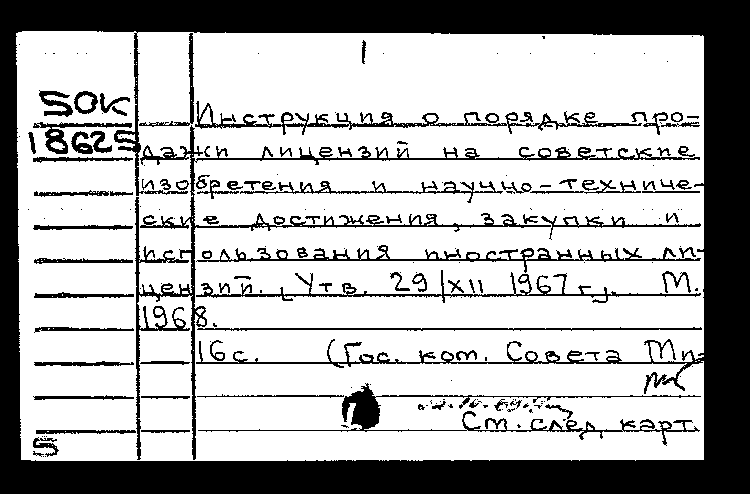 50К Инструкция о порядке про-
18625 дажи лицензий на советские
изобретения и научно-техниче-
ские достижения, закупки и
использования иностранных ли-
цензий. [Утв. 29/XII 1967 г]. М.
1968.
16 с. (Гос. ком. Совета Ми-
См. след. карт.
5